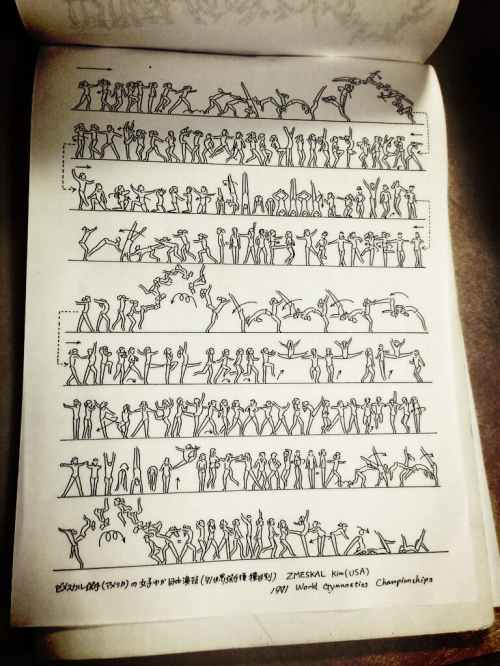 ズメスカル選手(アメリカ)の女子ゆか自由演技('91世界選手権 種目別) ZMESKAL Kim(USA)
1991 World Gymnastics Championships